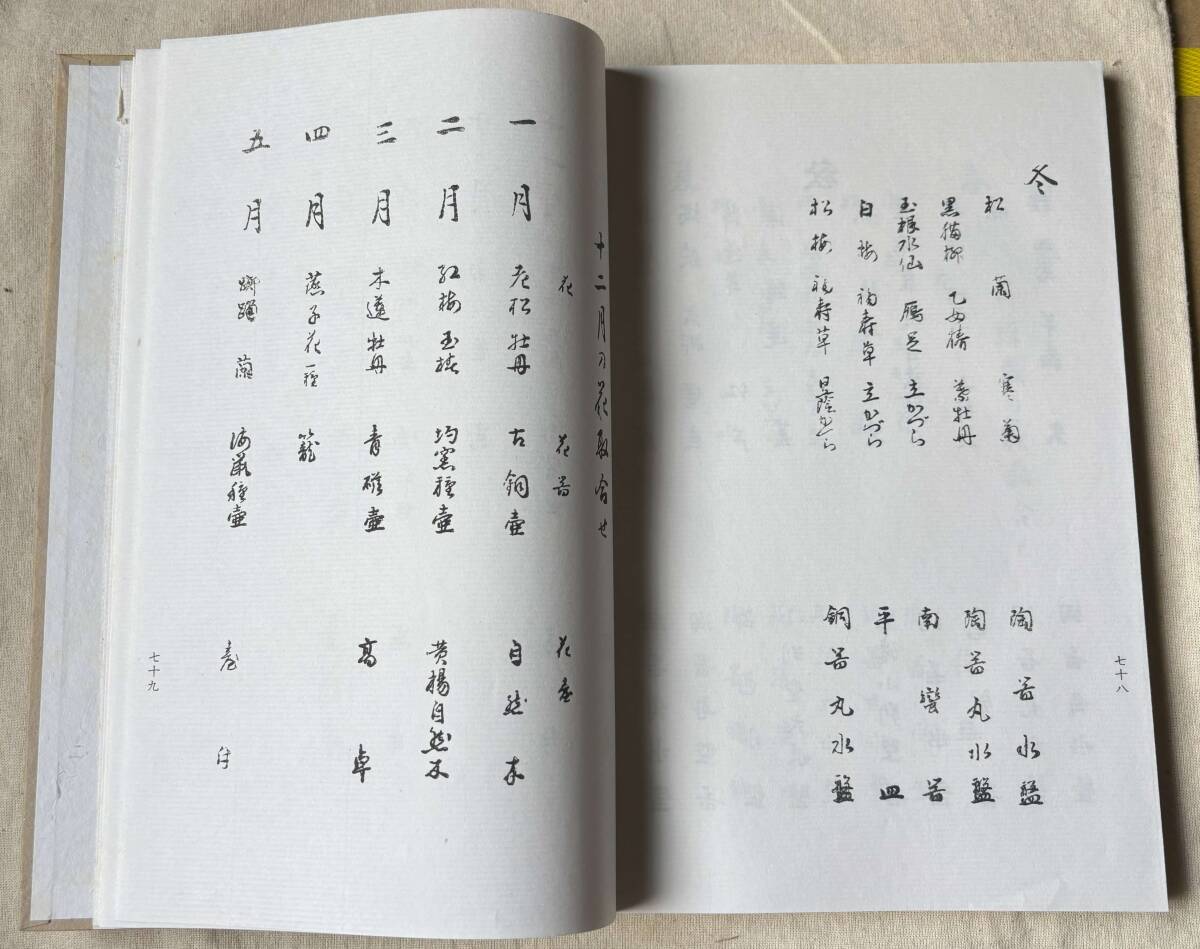 冬
松 蘭 寒菊 陶器水盤
黒猫柳 乙女椿 葉牡丹 陶器丸水盤
玉椴水仙 雁足 立かづら 南蛮器
白梅 福寿草 立かづら 平皿
松梅 福寿草 日蔭かづら 銅器丸水盤
七十八
十二月の花取合せ
花 花器 花台
一月 老松 牡丹 古銅壷 自然木
二月 紅梅 玉椿 均窯種壷 黄楊自然木
三月 木蓮 牡丹 青磁壷 高卓
四月 燕子花一種 籠
五月 躑躅 蘭 海鼠種壷 台付
七十九